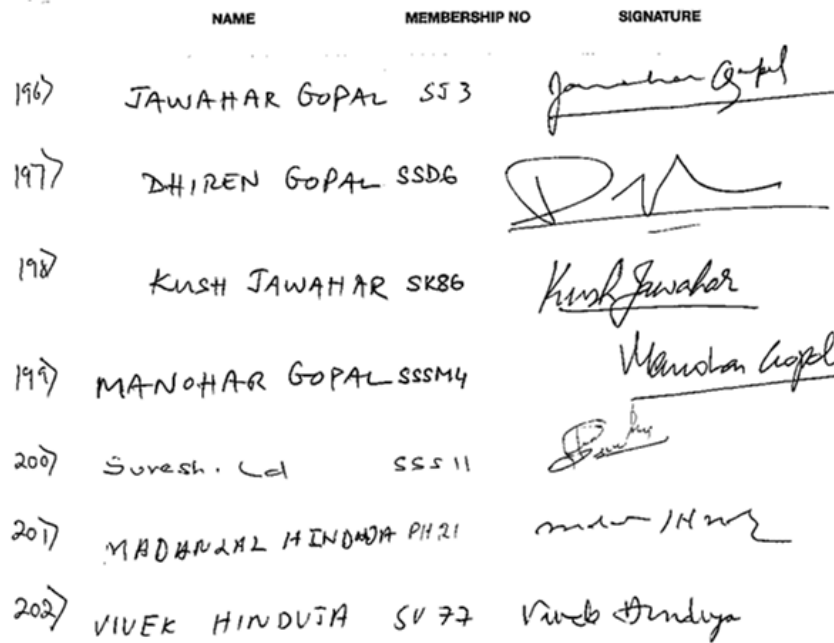 NAME MEMBERSHIP NO SIGNATURE
196) JAWAHAR GOPAL SJ3 Jawahar Gopal
197) DHIREN GOPAL SSD6
198) KUSH JAWAHAR SK86 Kush Jawahar
199) MANOHAR GOPAL SSSM4 Manohar Gopal
200) Suresh. Ld SSS11
201) MADANLAL HINDUJA PH21
202) VIVEK HINDUJA SV77 Vivek Hinduja